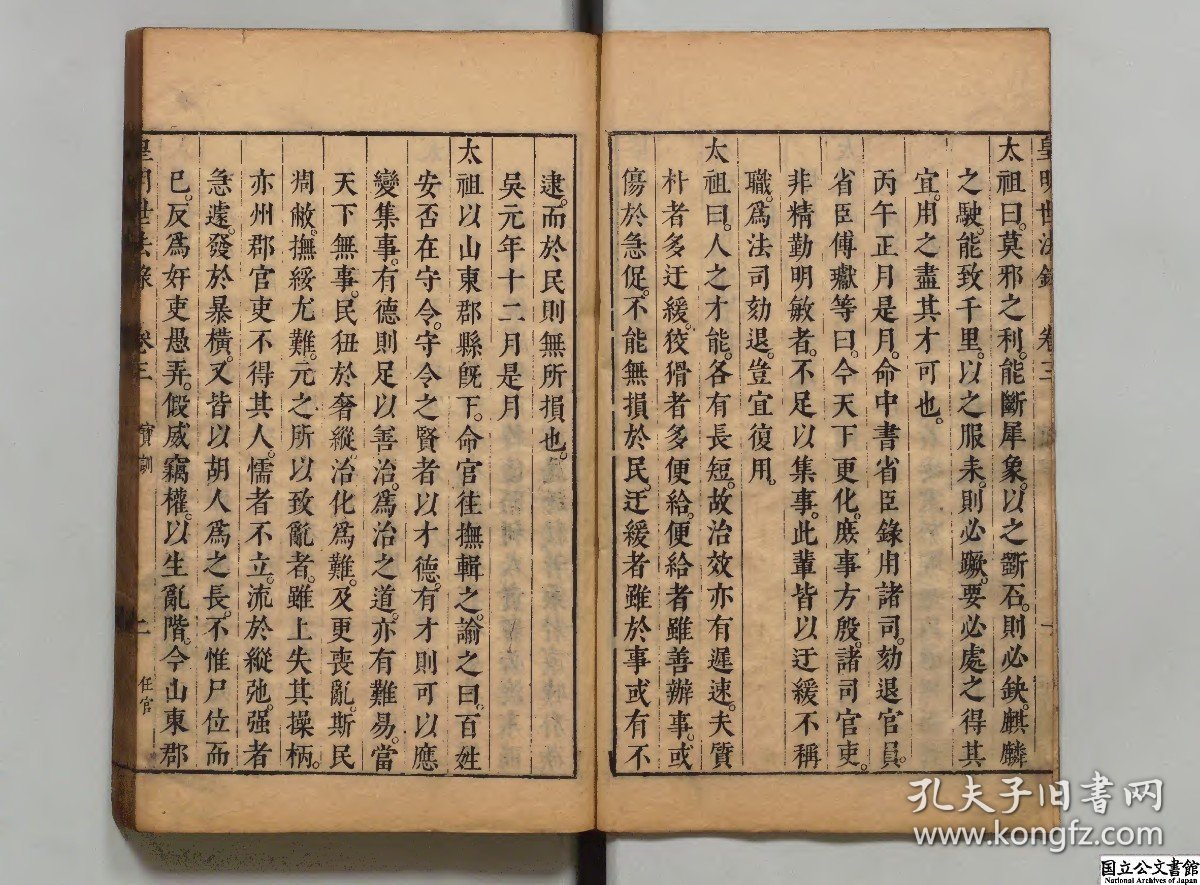 皇明世法錄 卷三 一
太祖曰。莫邪之利。能斷犀象。以之斵石。則必缺。麒麟
之駛。能致千里。以之服耒。則必蹶。要必處之得其
宜。用之盡其才可也。
丙午正月是月。命中書省臣錄用諸司。劾退官員。
省臣傅瓛等曰。今天下更化。庻事方殷。諸司官吏。
非精勤明敏者。不足以集事。此輩皆以迂緩不稱
職。爲法司劾退。豈宜復用。
太祖曰。人之才能。各有長短。故治效亦有遲速。夫質
朴者多迂緩。狡猾者多便給。便給者雖善辦事。或
傷於急促。不能無損於民。迂緩者雖於事或有不
逮。而於民則無所損也。
吳元年十二月是月
太祖以山東郡縣旣下。命官徃撫輯之。諭之曰。百姓
安否在守令。守令之賢者以才德。有才則可以應
變集事。有德則足以善治。爲治之道。亦有難易。當
天下無事。民狃於奢縱。治化爲難。及更喪亂。斯民
凋敝。撫綏尤難。元之所以致亂者。雖上失其操柄。
亦州郡官吏不得其人。懦者不立。流於縱弛。强者
急遽。發於暴橫。又皆以胡人爲之長。不惟尸位而
已。反爲奸吏愚弄。假威竊權。以生亂階。今山東郡
皇明世法錄 卷三 寶訓 二 任官
孔夫子旧书网
www.kongfz.com
国立公文書館
National Archives of Japan